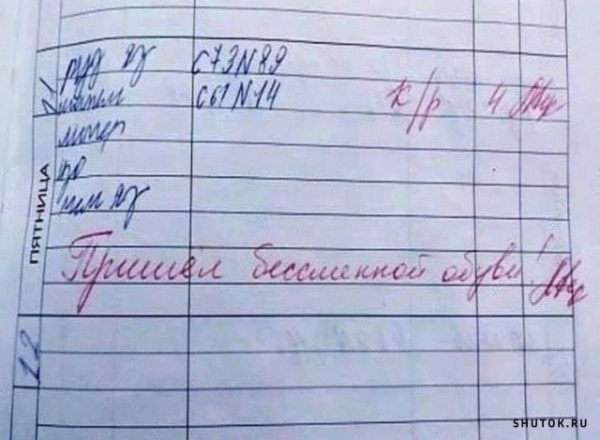 ПЯТНИЦА
21
рус яз С73N89
матем С61N14 к/р 4
литер
изо
Пришёл бессменной обуви!
22
SHUTOK.RU